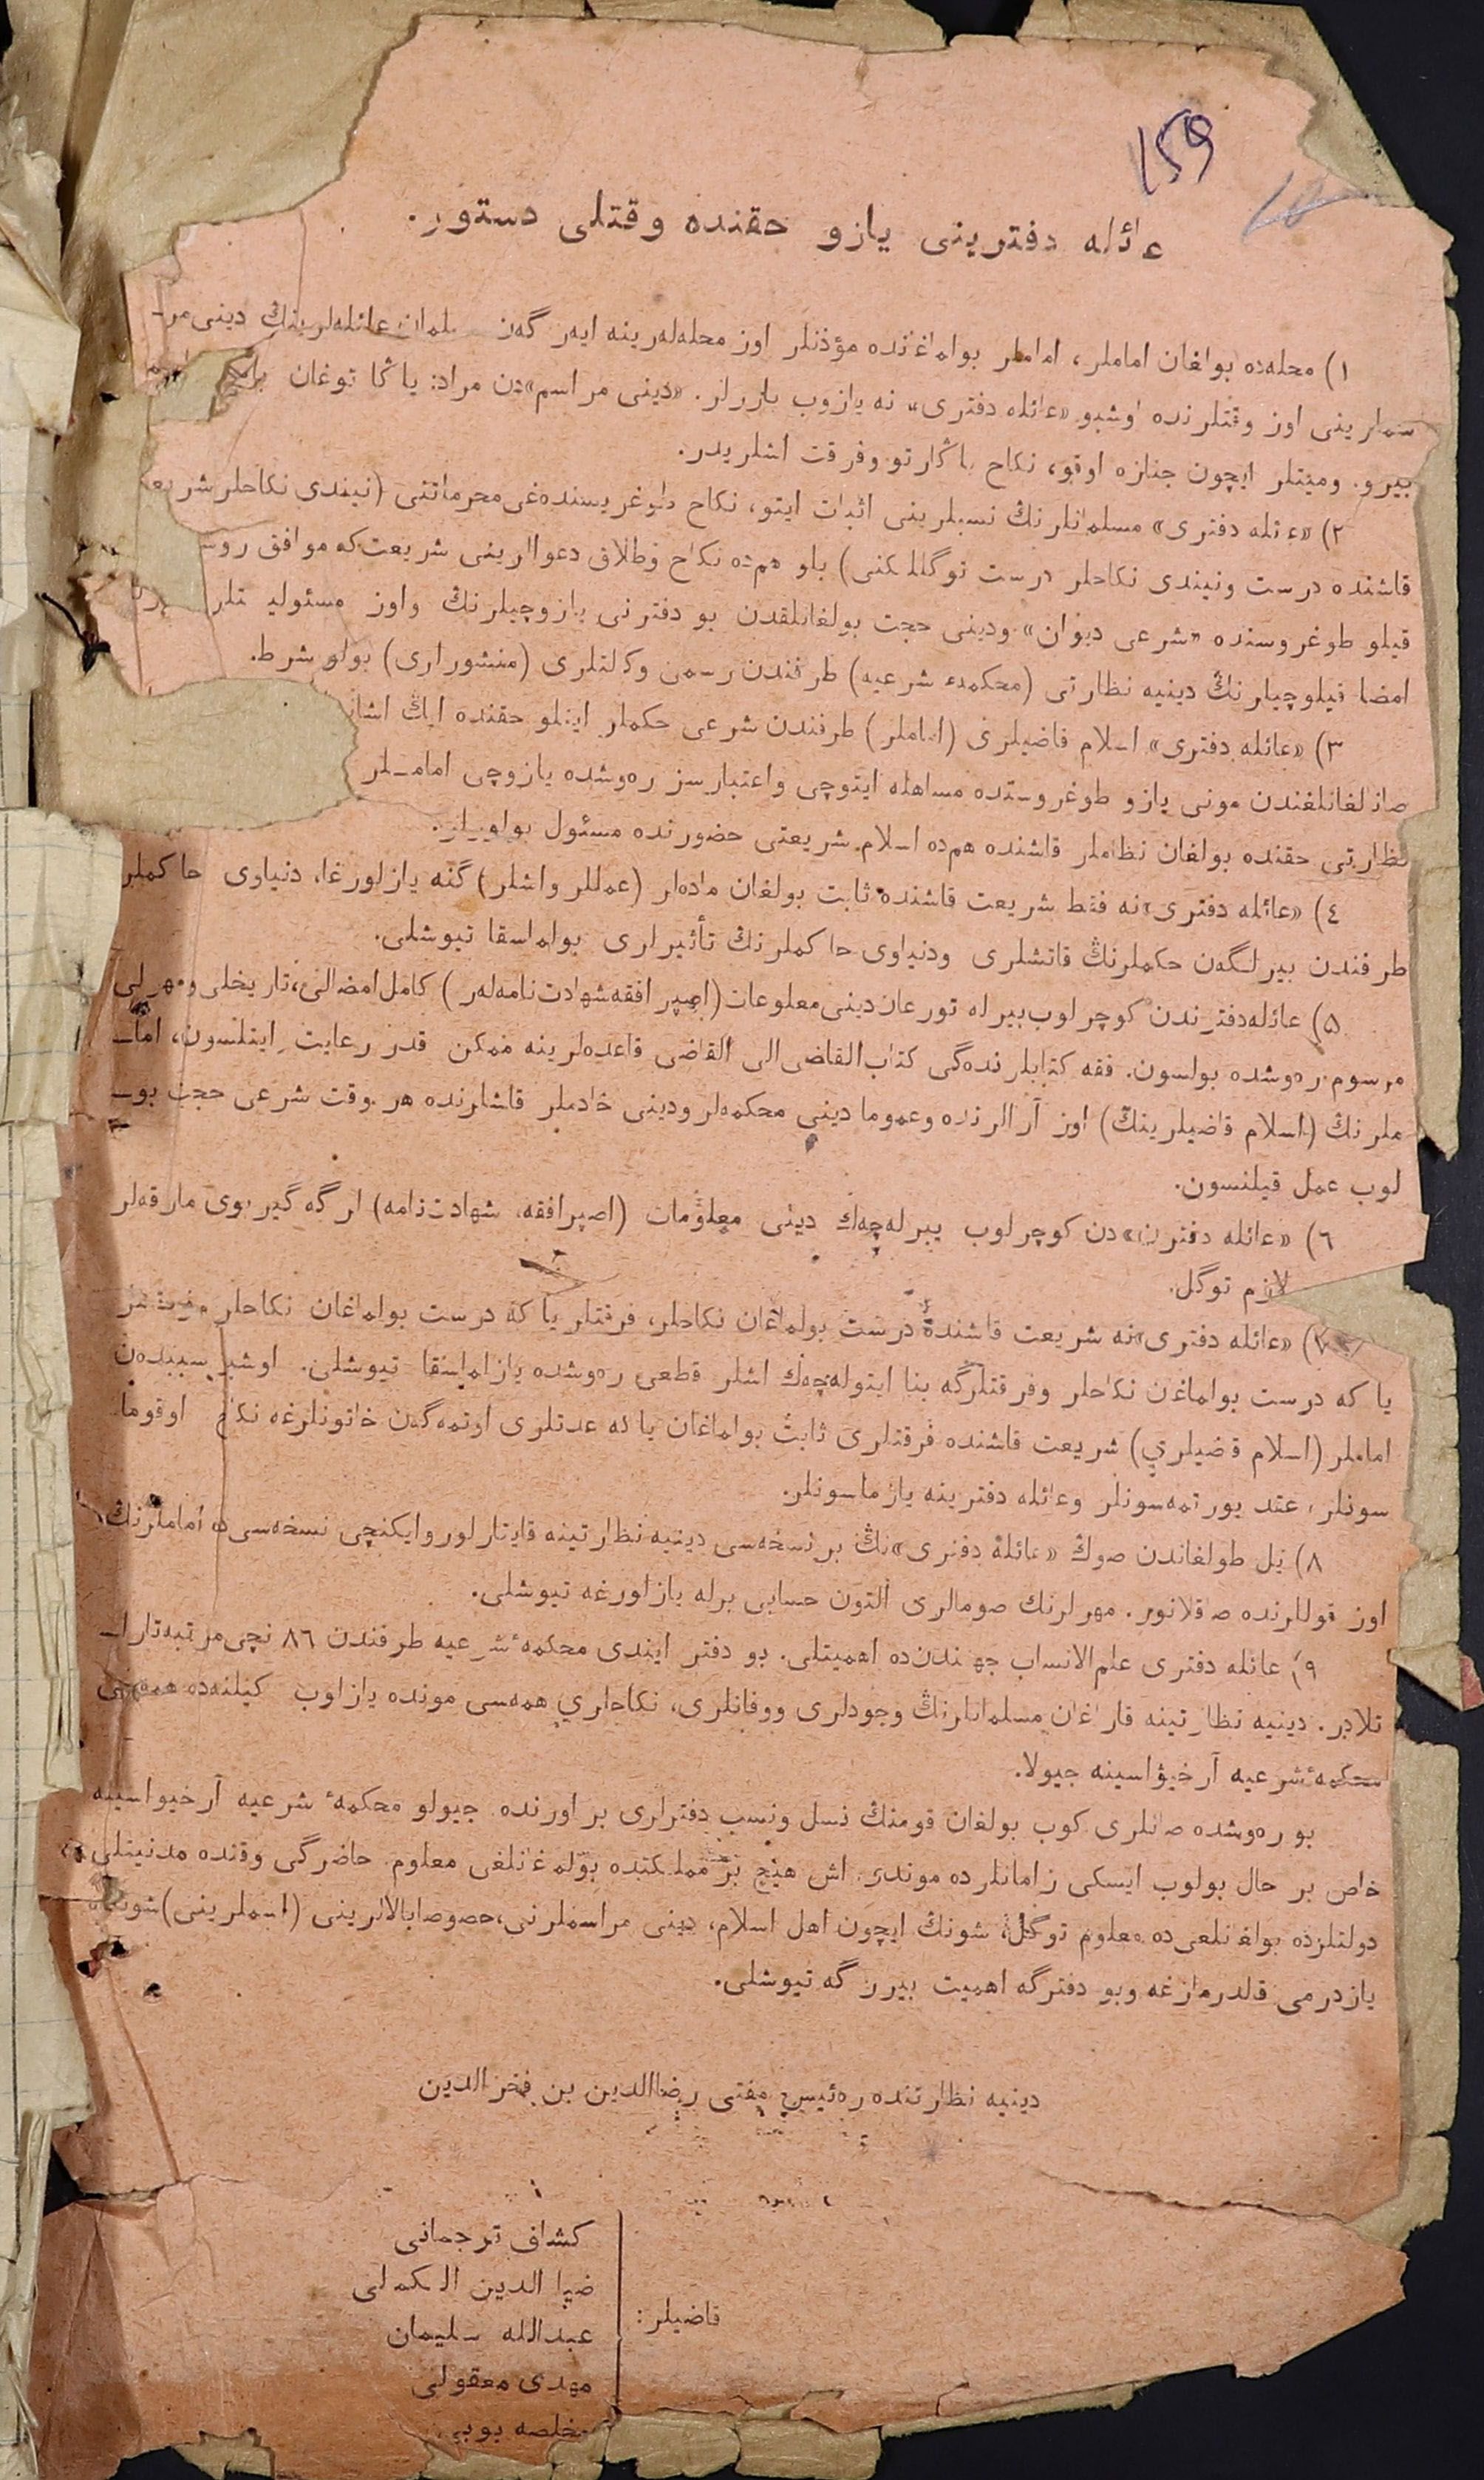 159
عائله دفترینی یازو حقنده وقتلی دستور.
۱) محله‌ده بولغان اماملر، اماملر بولماغانده مؤذنلر اوز محله‌له‌رینه ایه‌ر گه‌ن عائله‌لرینڭ دینی مرا-
سملرینی اوز وقتلرنده اوشبو «عائله دفتری» نه یازوب باررلر. «دینی مراسم» دن مراد: یاڭا توغان
بیرو. ومیتلر ایچون جنازه اوقو، نکاح باڭارتو وفرقت اشلریدر.
۲) «عائله دفتری» مسلمانلرنڭ نسبلرینی اثبات ایتو، نکاح طوغریسنده‌غی محرماتنی (نیندی نکاحلر شریعت
قاشنده درست ونیندی نکاحلر درست توگللکنی) بلو هم‌ده نکاح وطلاق دعوالرینی شریعت‌که موافق
قیلو طوغروسنده «شرعی دیوان» ودینی حجت بولغانلقدن بو دفترنی یازوچیلرنڭ واوز
امضا قیلوچیلرنڭ دینیه نظارتی (محکمهٔ شرعیه) طرفندن رسمی وکالتلری (منشورلری) بولو شرط.
۳) «عائله دفتری» اسلام قاضیلری (اماملر) طرفندن شرعی حکملر ایتلو حقنده ایڭ
صانالغانلغندن مونی یازو طوغروسنده مساهله ایتوچی واعتبارسز ره‌وشده یازوچی اماملر
نظارتی حقنده بولغان نظاملر قاشنده هم‌ده اسلام شریعتی حضورنده مسئول بولورلر.
٤) «عائله دفتری» نه فقط شریعت قاشنده ثابت بولغان ماده‌لر (عمللر واشلر) گنه یازلورغا، دنیاوی حاکملر
طرفندن بیرلگه‌ن حکملرنڭ قاتشلری ودنیاوی حاکملرنڭ تأثیرلری بولماسقا تیوشلی.
۵) عائله دفترندن کوچرلوب بیرله تورغان دینی معلومات (اصپرافقه شهادت‌نامه‌لر) کامل امضالی، تاریخلی ومهرلی
مرسوم ره‌وشده بولسون. فقه کتابلرنده‌گی کتاب القاضی الی القاضی قاعده‌لرینه ممکن قدر رعایت ایتلسون، اما-
ملرنڭ (اسلام قاضیلرینڭ) اوز آرالرنده وعموما دینی محکمه‌لر ودینی خادملر قاشلرنده هر وقت شرعی حجت بو-
لوب عمل قیلنسون.
٦) «عائله دفتری» دن کوچرلوب بیرله‌چه‌ك دینی معلومات (اصپرافقه، شهادت‌نامه) لرگه گیربوی مارقه‌لر
لازم توگل.
۷) «عائله دفتری» نه شریعت قاشنده درست بولماغان نکاحلر، فرقتلر یا که درست بولماغان نکاحلر
یا که درست بولماغان نکاحلر وفرقتلرگه بنا ایتوله‌چه‌ك اشلر قطعی ره‌وشده یازلماسقا تیوشلی. اوشبو سببدەن
اماملر (اسلام قاضیلری) شریعت قاشنده فرقتلری ثابت بولماغان یا که عدتلری اوتمه‌گه‌ن خاتونلرغه نکاح اوقوما-
سونلر، عقد یورتمه‌سونلر وعائله دفترینه یازماسونلر.
۸) یل طولغاندن صوڭ «عائله دفتری» نڭ بر نسخه‌سی دینیه نظارتینه قایتارلور وایکنچی نسخه‌سی ده اماملرنڭ
اوز قوللرنده صاقلانور. مهرلرنڭ صومالری آلتون حسابی برله یازلورغه تیوشلی.
۹) عائله دفتری علم الانساب جهتندن ده اهمیتلی. بو دفتر ایندی محکمهٔ شرعیه طرفندن ۸٦ نچی مرتبه تارا-
تلادر. دینیه نظارتینه قاراغان مسلمانلرنڭ وجودلری ووفاتلری، نکاحلری همه‌سی مونده یازلوب کیلنه‌ده همه‌سی
محکمهٔ شرعیه آرخیواسینه جیولا.
بو ره‌وشده صانلری کوب بولغان قومنڭ نسل ونسب دفترلری بر اورنده جیولو محکمهٔ شرعیه آرخیواسینه
خاص بر حال بولوب ایسکی زامانلرده موندی اش هیچ بر مملکتده بولمغانلغی معلوم. حاضرگی وقتده مدنیتلی
دولتلرده بولغانلغی ده معلوم توگل، شونڭ ایچون اهل اسلام، دینی مراسملرنی، خصوصا بالالرینی (اسملرینی) شونده
یازدرمی قالدرمازغه وبو دفترگه اهمیت بیررگه تیوشلی.
دینیه نظارتنده ره‌ئیس مفتی رضاالدین بن فخرالدین
قاضیلر:
کشاف ترجمانی
ضیا الدین الکمالی
عبدالله سلیمان
مهدی معقولی
مخلصه بوبی